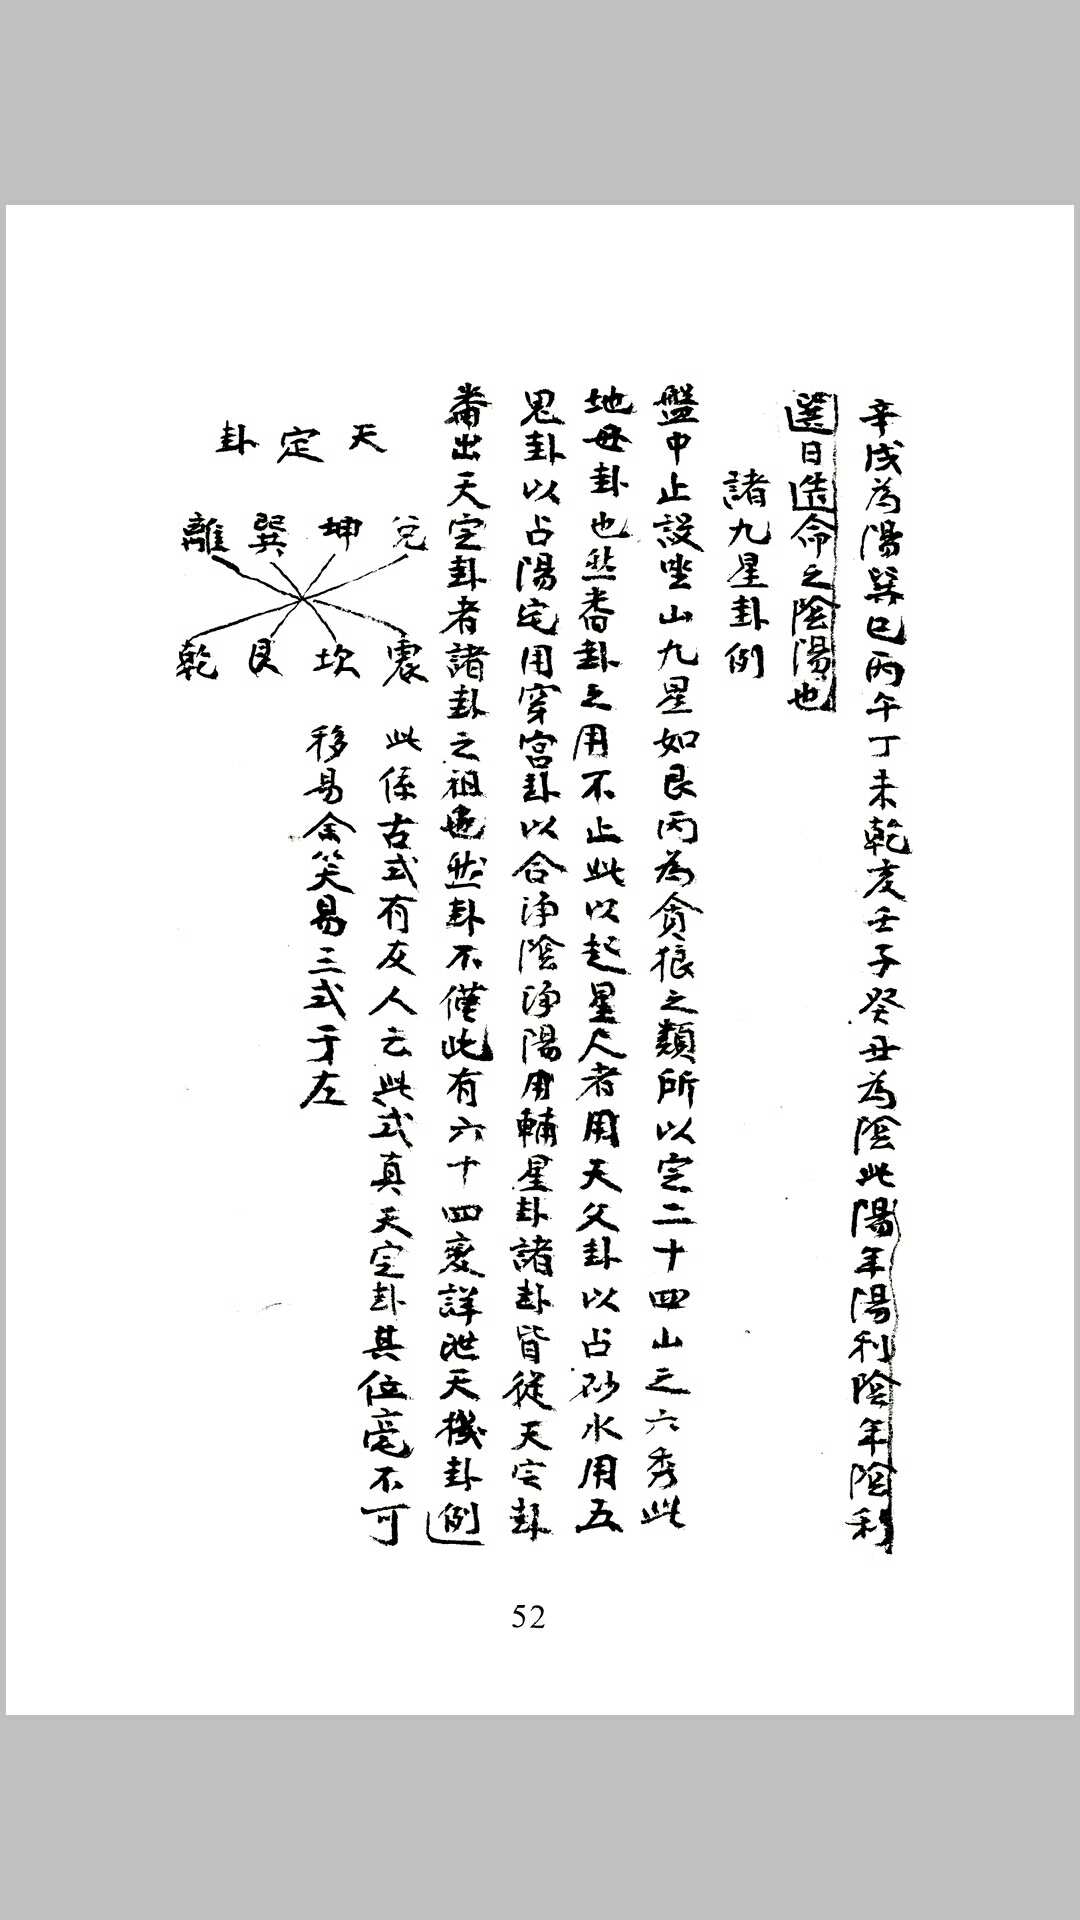 辛戌為陽巽巳丙午丁未乾亥壬子癸丑為陰此陽年陽利陰年陰利
選日造命之陰陽也
諸九星卦例
盤中止設坐山九星如艮丙為貪狼之類所以定二十四山之六秀此
地母卦也然番卦之用不止此以起星人者用天父卦以占砂水用五
鬼卦以占陽宅用穿宮卦以合淨陰淨陽用輔星卦諸卦皆從天定卦
番出天定卦者諸卦之祖也然卦不僅此有六十四变詳泄天機卦例
天定卦
兌坤巽離
震坎艮乾
此係古式有友人云此式真天定卦其位毫不可
移易余笑易三式于左
52